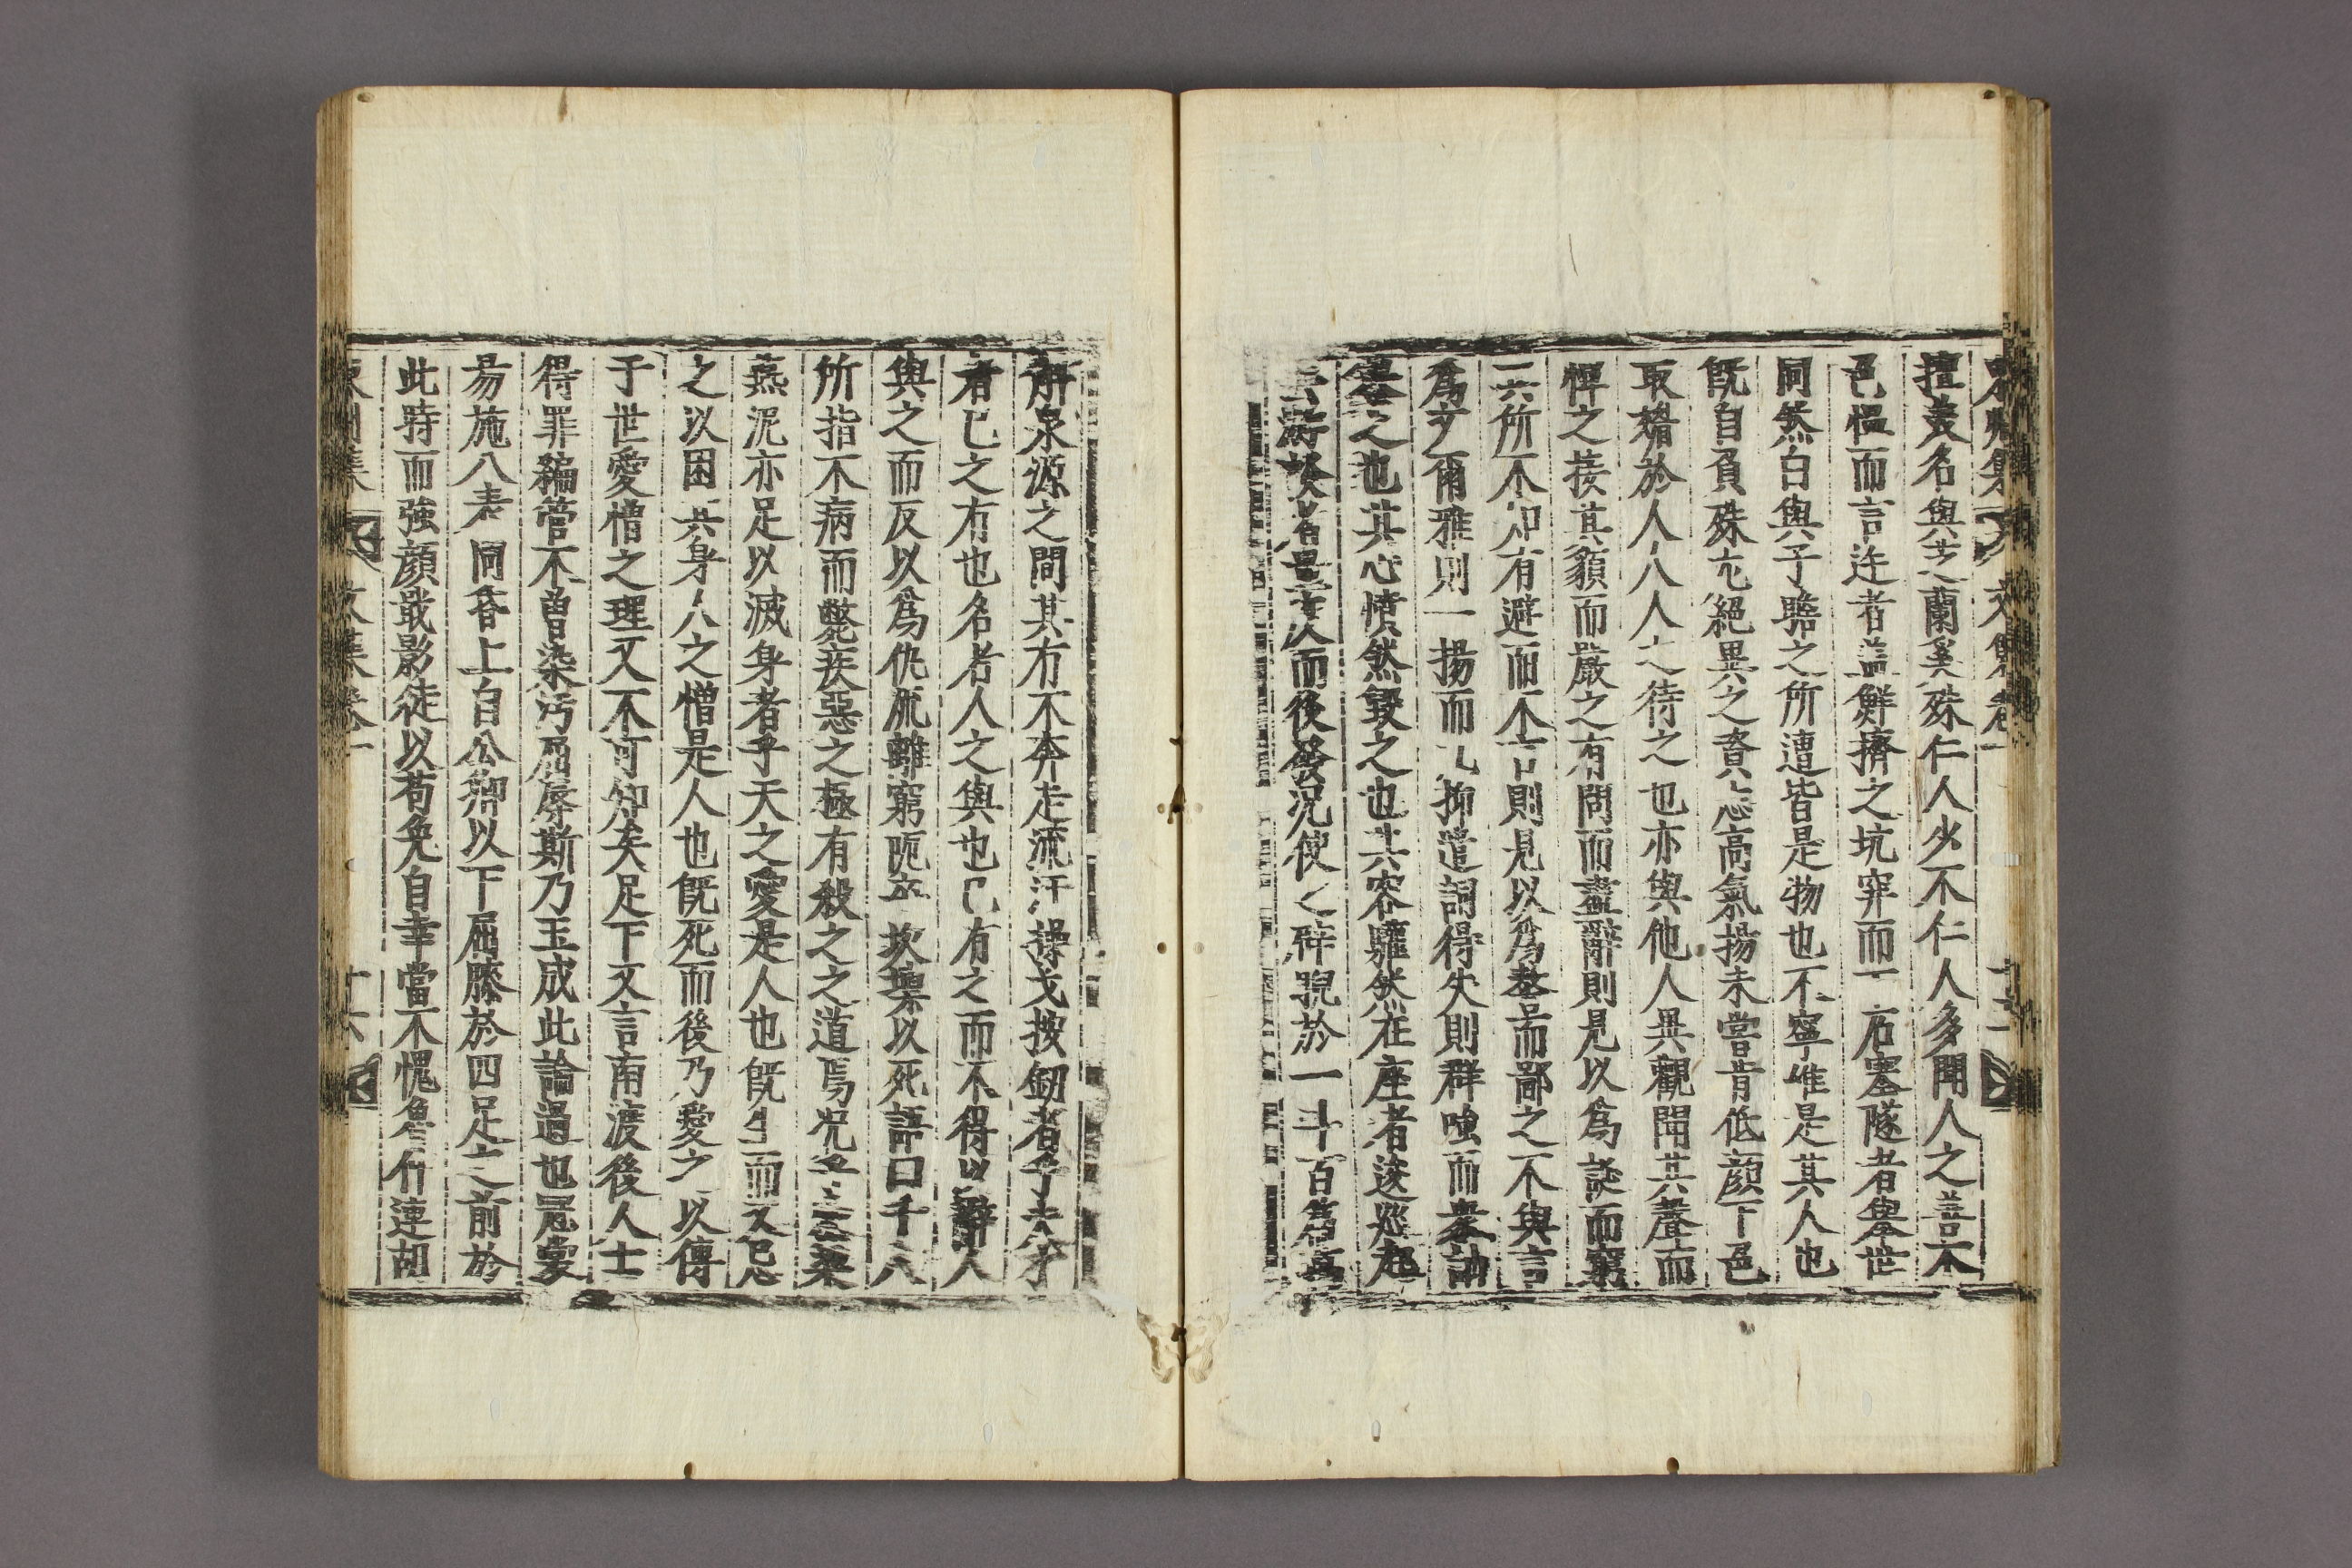 擅美名與芝蘭奚殊仁人少不仁人多聞人之善不
色慍而言迕者盖鮮擠之坑穽而下石塞隧者舉世
同然白與子瞻之所遭皆是物也不寧惟是其人也
旣自負殊尤絕異之資志高氣揚未嘗肯低顔下色
取媚於人人人之待之也亦與他人異觀聞其聲而
憚之接其貌而嚴之有問而盡辭則見以爲談而窮
其所不知有避而不言則見以爲而鄙之不與言
爲文爾雅則一揚而九抑遣詞得失則群嗤而衆訕
之也其心憤然毀之也其容驩然在座者逡巡起
而後發況使之睥睨於一斗百篇
解泉源之間其有不奔走流汗操戈按釰者乎夫才
者己之有也名者人之與也己有之而不得以辭人
與之而反以爲仇流離窮阨卒坎壈以死語曰千人
所指不病而斃疾惡之極有殺之之道焉况乎
燕泥亦足以滅身者乎天之愛是人也旣生而又忌
之以困其身人之憎是人也旣死而後乃愛之以傳
于世愛憎之理又不可知矣足下又言南渡後人士
得罪編管不曾染汚屈辱斯乃玉成此論過也冠裳
易施八表同昏上自公卿以下屈膝於四足之前於
此時而強顔戢影徒以苟免自幸當不愧魯仲連胡
東州集 文集卷一 十六